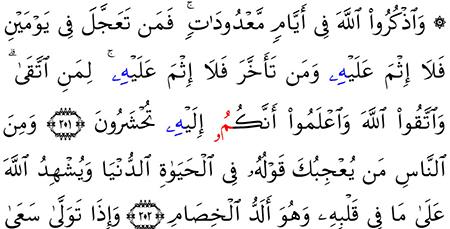 ۞ وَاَذۡكُرُواْ اُللَّهَ فِي أَيَّامٖ مَّعۡدُودَٰتٖۚ فَمَن تَعَجَّلَ فِي يَوۡمَيۡنِ
فَلَا إِثۡمَ عَلَيۡهِۦ وَمَن تَأَخَّرَ فَلَا إِثۡمَ عَلَيۡهِۦۚ لِمَنِ اِتَّقَىٰۗ
وَاَتَّقُواْ اُللَّهَ وَاَعۡلَمُواْ أَنَّكُمُۥ إِلَيۡهِۦ تُحۡشَرُونَ ٢٠١ وَمِنَ
اَلنَّاسِ مَن يُعۡجِبُكَ قَوۡلُهُۥ فِي اِلۡحَيَوٰةِ اِلدُّنۡيَا وَيُشۡهِدُ اُللَّهَ
عَلَىٰ مَا فِي قَلۡبِهِۦ وَهُوَ أَلَدُّ اُلۡخِصَامِ ٢٠٢ وَإِذَا تَوَلَّىٰ سَعَىٰ